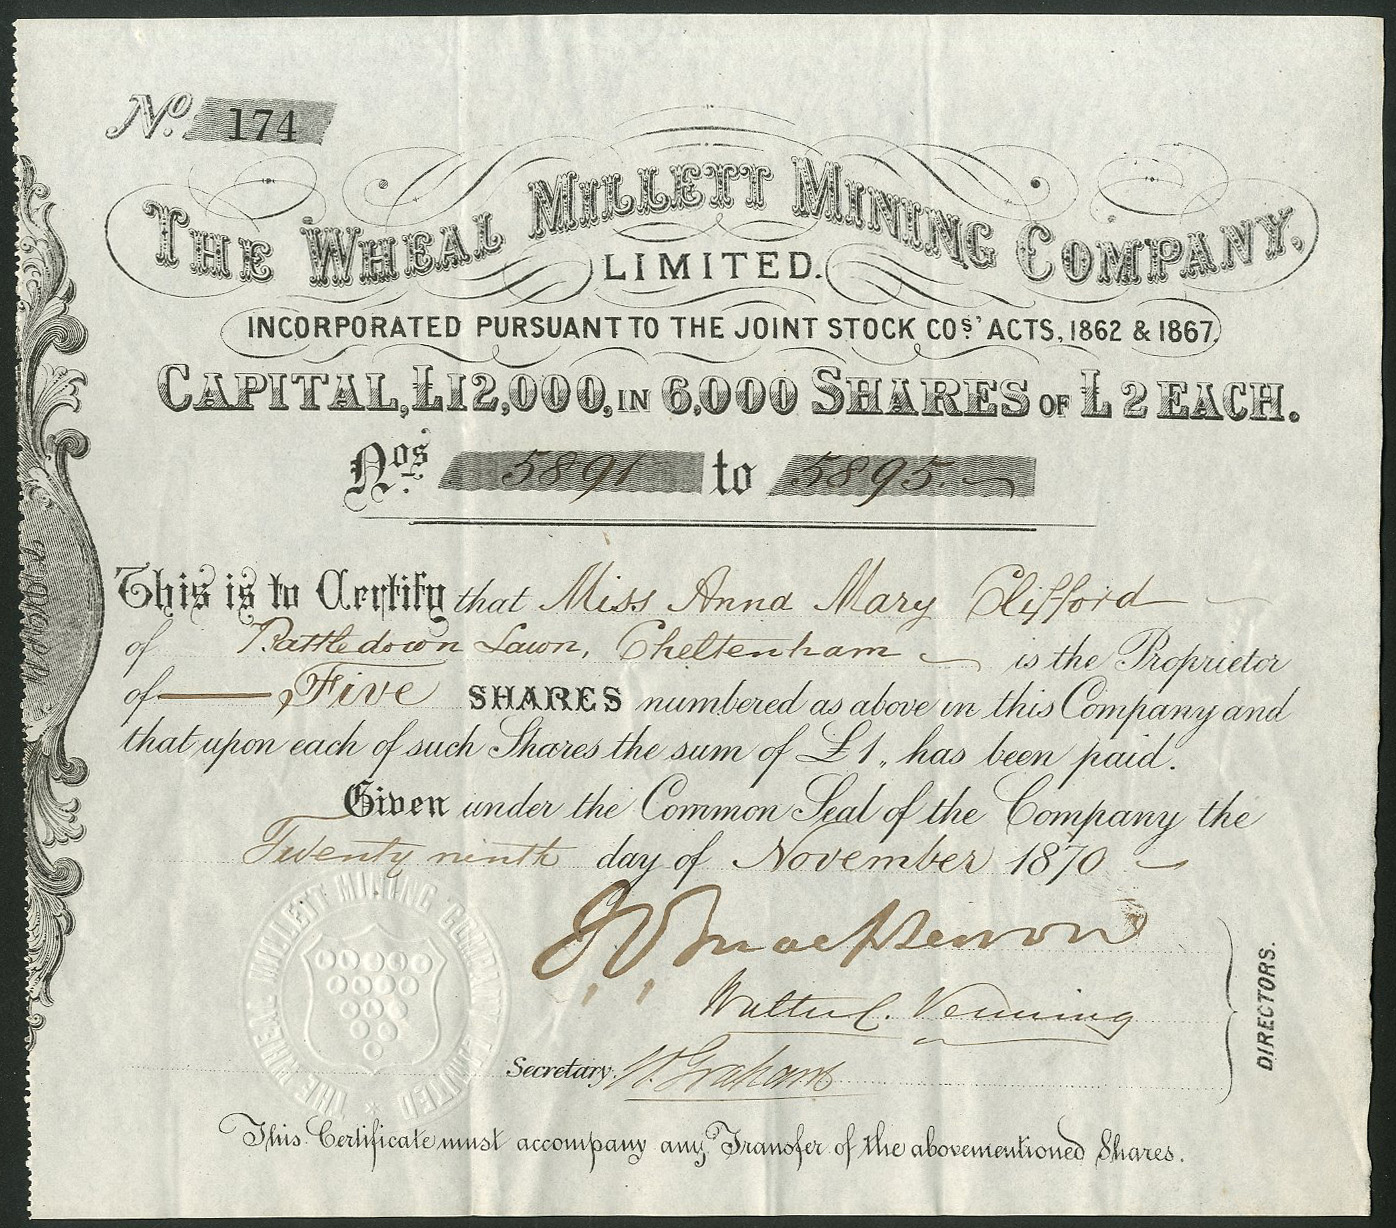 No. 174
THE WHEAL MILLETT MINING COMPANY,
LIMITED.
INCORPORATED PURSUANT TO THE JOINT STOCK COS' ACTS, 1862 & 1867.
CAPITAL, £12,000, IN 6,000 SHARES OF £2 EACH.
Nos. 5891 to 5895.
This is to Certify that Miss Anna Mary Clifford
of Battledown Lawn, Cheltenham is the Proprietor
of Five SHARES numbered as above in this Company and
that upon each of such Shares the sum of £1,, has been paid.
Given under the Common Seal of the Company the
Twenty ninth day of November 1870
THE WHEAL MILLETT MINING COMPANY LIMITED
Macpherson
Walter C. Venning
DIRECTORS.
Secretary. W. Graham
This Certificate must accompany any Transfer of the abovementioned Shares.